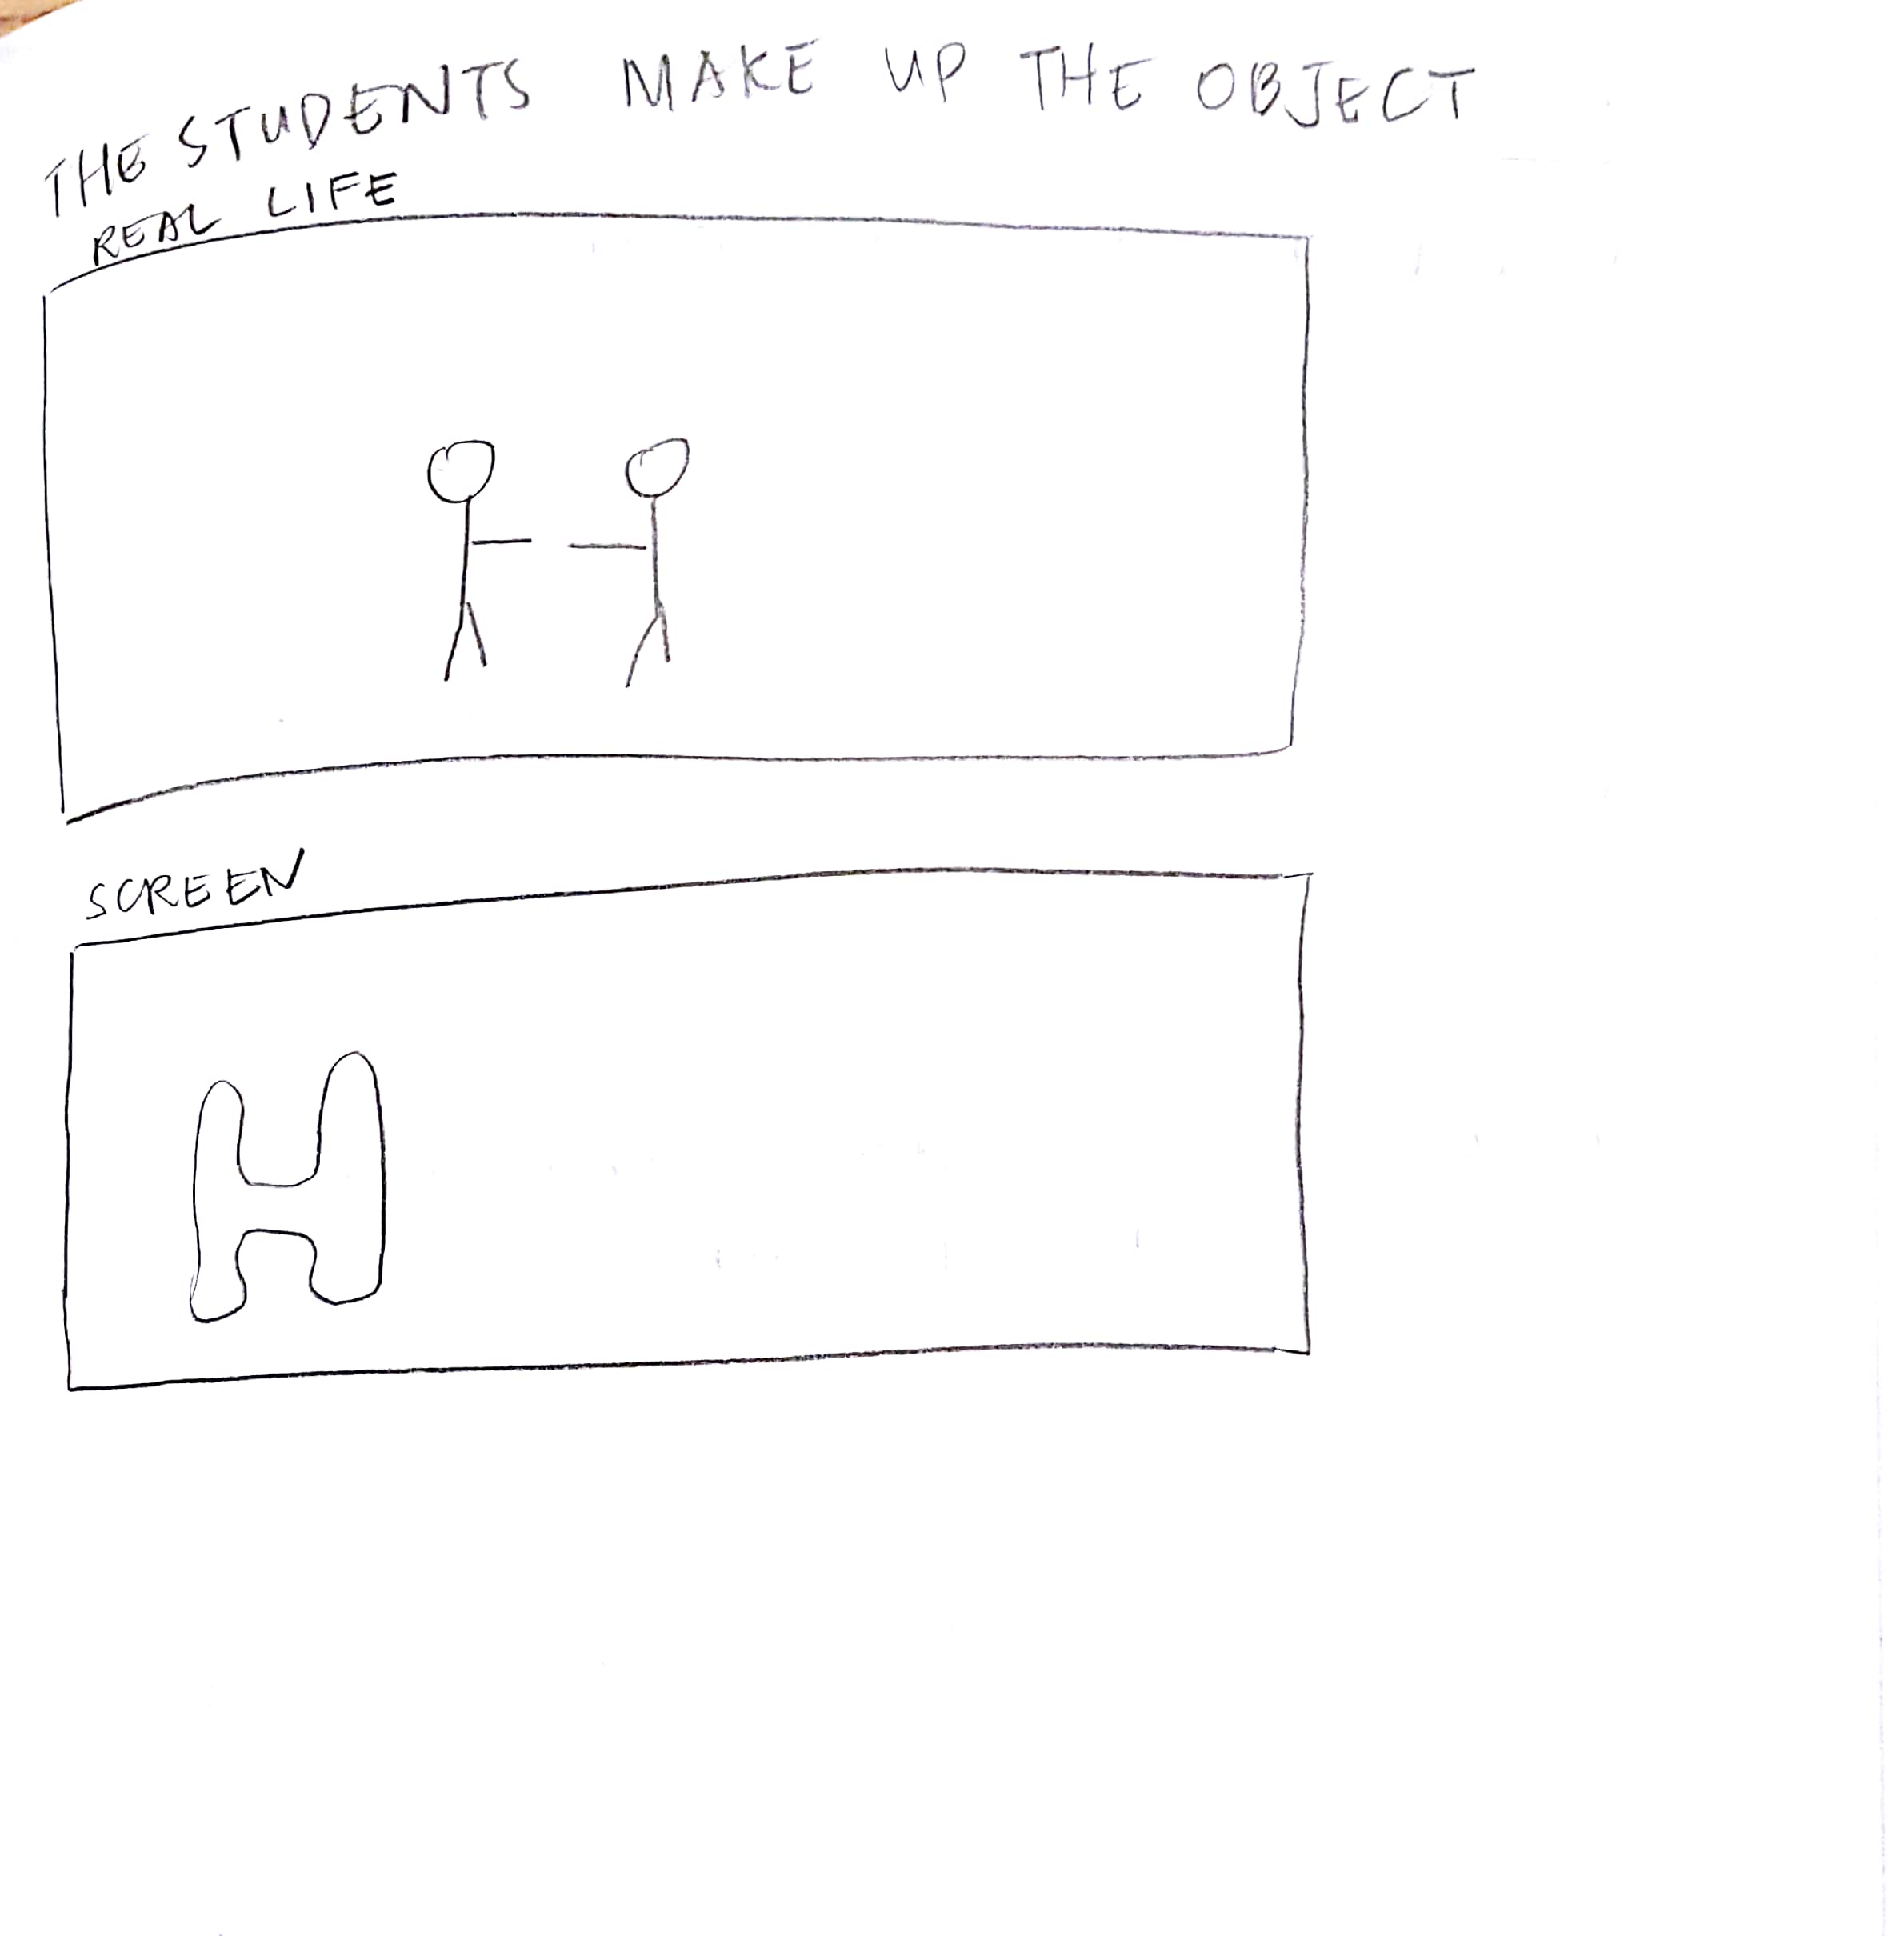 THE STUDENTS MAKE UP THE OBJECT
REAL LIFE
SCREEN